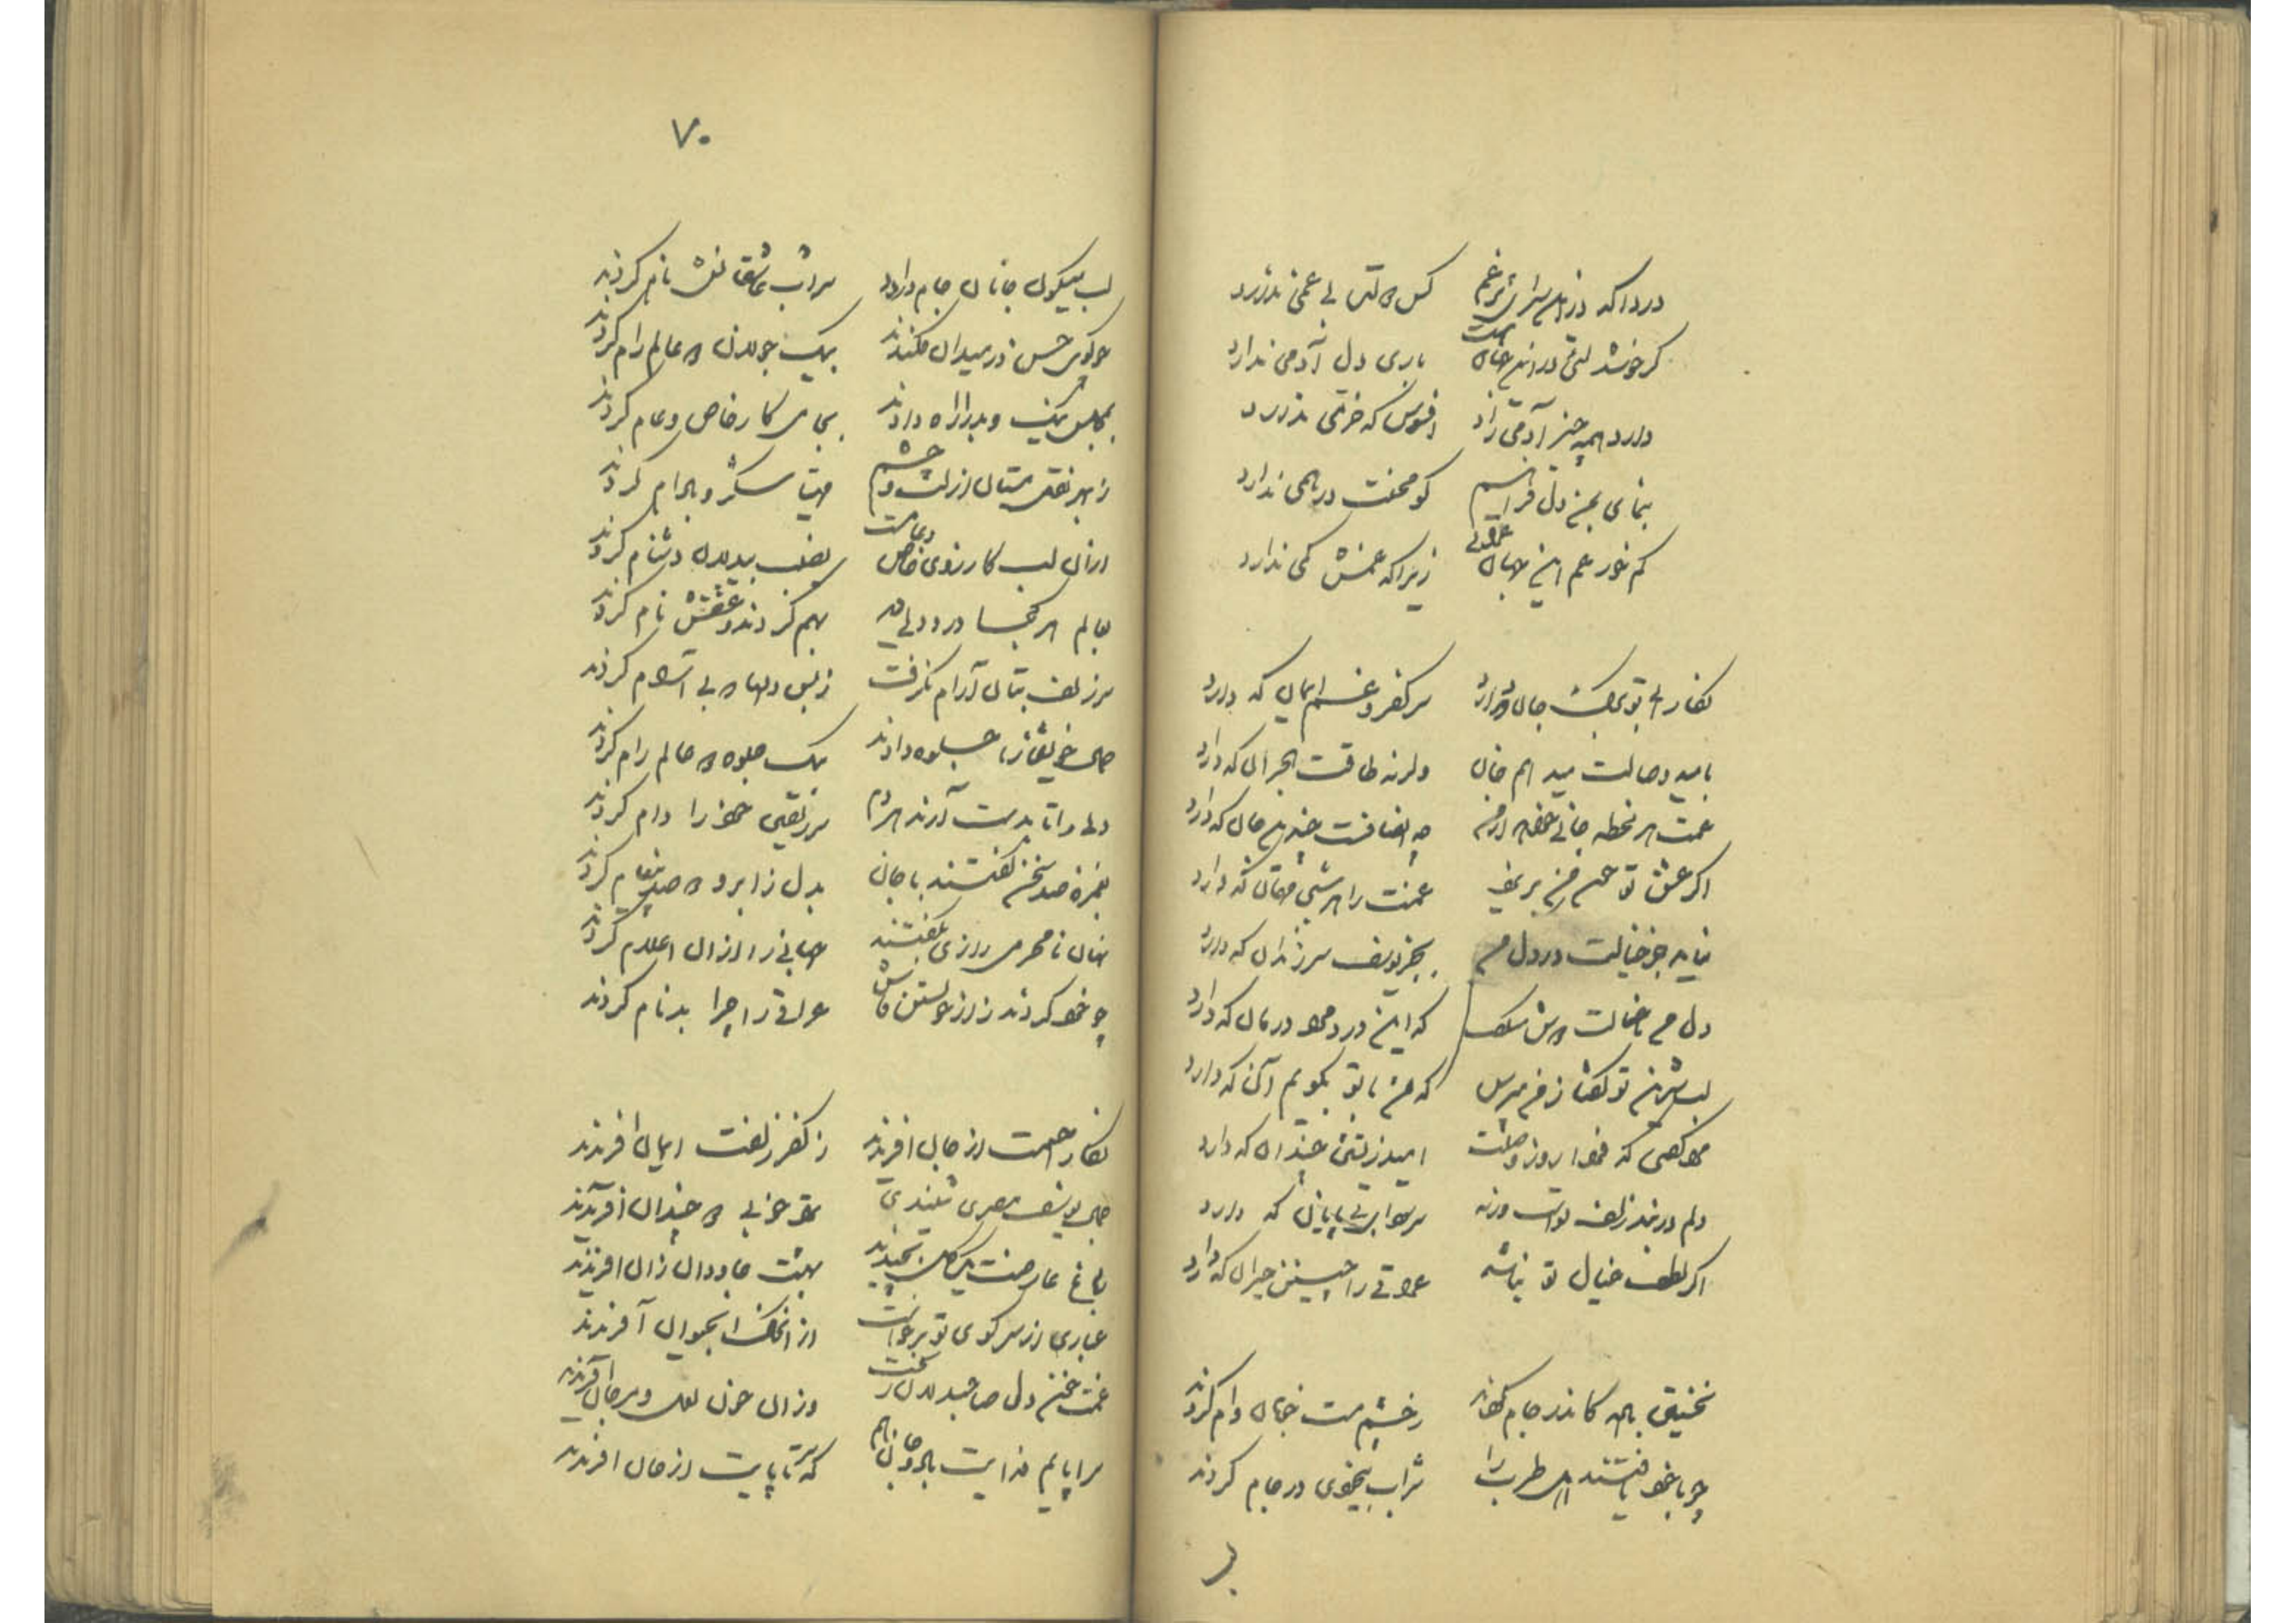 دردا که درین سرای پر غم کس همنفس بی غمی ندارد
گر خوشدلئی درین جهان هست باری دل آدمی ندارد
دارد همه چیز آدمی زاد افسوس که خرمی ندارد
بنمای بمن دلی فراهم کو محنت درهمی ندارد
کم خور غم این جهان عراقی زیرا که غمش کمی ندارد
نگارا بی تو برگ جان که دارد سر کفر و غم ایمان که دارد
بامید وصالت میدهم جان وگرنه طاقت هجران که دارد
غمت هر لحظه جانی خواهد از من چه انصافست چندین جان که دارد
اگر عشق تو خون من نریزد غمت را هر شبی مهمان که دارد
نیاید جز خیالت در دل من بجز یوسف سر زندان که دارد
دل من با خیالت دوش میگفت که این درد مرا درمان که دارد
لب شیرین تو گفتا ز من پرس که من با تو بگویم آن که دارد
مرا گفتی که فردا روز وصلست امید زیستن چندان که دارد
دلم در بند زلف تواست ورنه سر سودای بی پایان که دارد
اگر لطف خیال تو نباشد عراقی را چنین حیران که دارد
نخستین باده کاندر جام کردند ز چشم مست خوبان وام کردند
چو با خود یافتند اهل طرب را شراب بیخودی در جام کردند
۷۰
لب میگون جانان جام در داد شراب عاشقانش نام کردند
چو گوی حسن در میدان فکندند بیک جولان دو عالم رام کردند
بمجلس نیک و بد را راه دادند بجامی کار خاص و عام کردند
ز بهر نقل مستان از لب و چشم مهیا شکر و بادام کردند
از آن لب کارزوی خاص و عامست نصیب بیدلان دشنام کردند
بعالم هر کجا درد دلی بد بهم کردند و عشقش نام کردند
سر زلف بتان آرام نگرفت ز بس دلها که بی آرام کردند
جمال خویشتن را جلوه دادند بیک جلوه دو عالم رام کردند
دلی را تا بدست آرند هر دم سر زلفین خود را دام کردند
بغمزه صد سخن گفتند با جان بدل ز ابرو دو صد پیغام کردند
نهان با محرمی رازی بگفتند جهانی را از آن اعلام کردند
چو خود کردند راز خویشتن فاش عراقی را چرا بدنام کردند
نگارا جسمت از جان آفریدند ز کفر زلفت ایمان آفریدند
جمال یوسف مصری شنیدی تو را خوبی دو چندان آفریدند
ز باغ عارضت یک گل بچیدند بهشت جاودان زان آفریدند
غباری از سر کوی تو برخاست از آن خاک آب حیوان آفریدند
غمت خون دل صاحبدلان ریخت وز آن خون لعل و مرجان آفریدند
سراپایم فدایت باد و جان هم که سر تا پایت از جان آفریدند